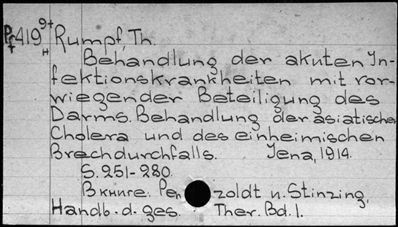 Pr 419 9+ Rumpf, Th.
Behandlung der akuten In-
fektionskrankheiten mit vor-
wiegender Beteiligung des
Darms. Behandlung der asiatischen
Cholera und des einheimischen
Brechdurchfalls. Jena, 1914.
S. 251-280.
В книге: Pen zoldt u. Stinzing,
Handb. d. ges. Ther. Bd. 1.